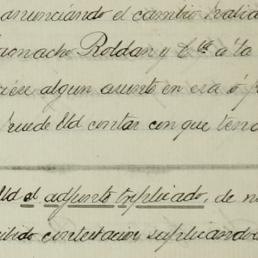 anunciando el cambio
Camacho Roldan y Cía á la
algun asunto en esa ó
puede Ud contar con que
Ud el adjunto triplicado, de
contestacion suplicando